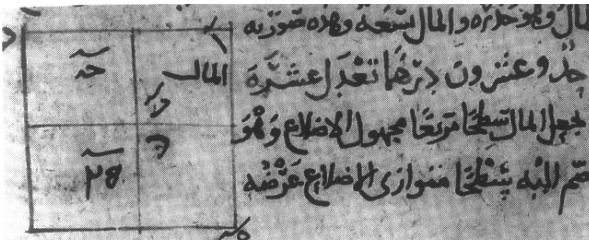 مال وهو جذره والمال تسعة وهذه صورته
حد وعشرون درهما تعدل عشرة
نجعل المال سطحا مربعا مجهول الاضلاع وهو
نضم اليه سطحا متوازى الاضلاع عرضه
المال